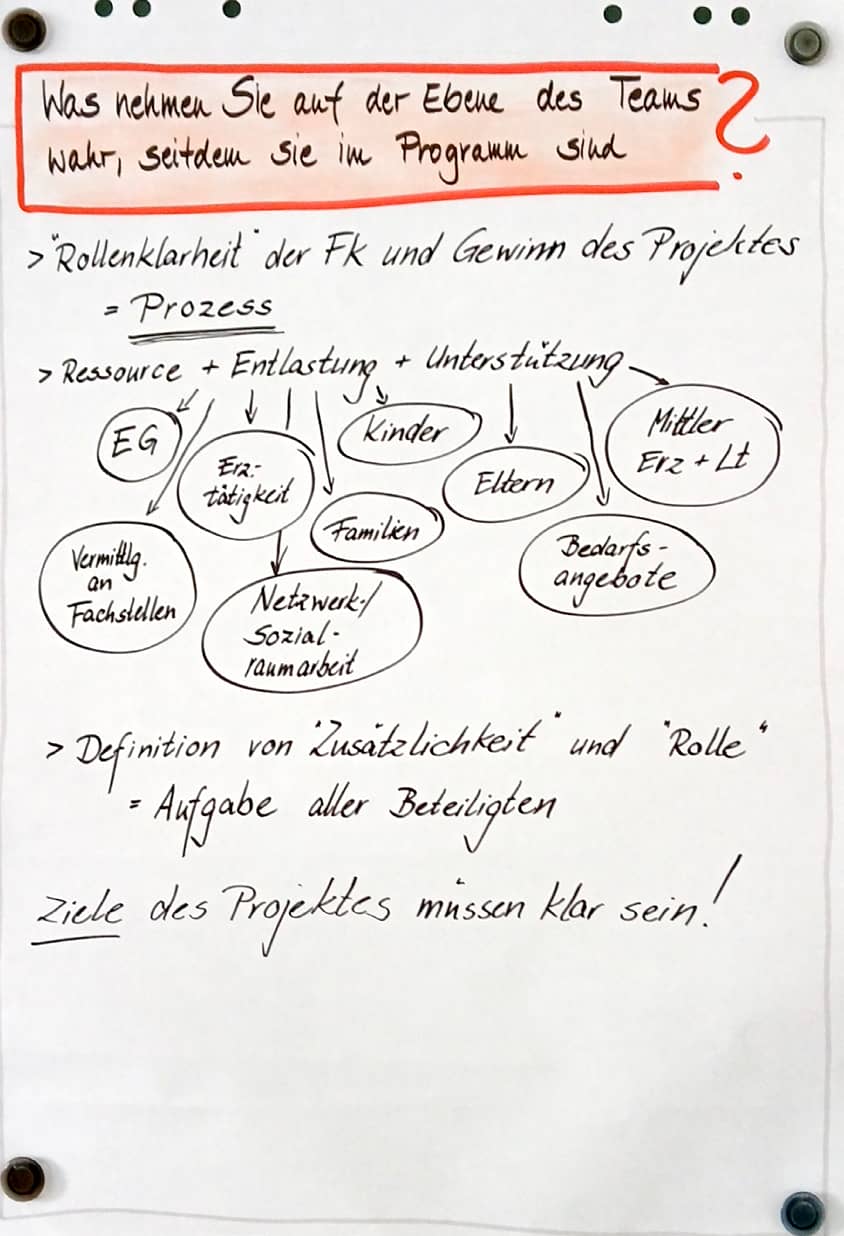 Was nehmen Sie auf der Ebene des Teams
wahr, seitdem sie im Programm sind ?
> "Rollenklarheit" der Fk und Gewinn des Projektes
= Prozess
> Ressource + Entlastung + Unterstützung
EG
Erz.-
tätigkeit
Kinder
Eltern
Mittler
Erz + Lt
Vermittlg.
an
Fachstellen
Familien
Bedarfs-
angebote
Netzwerk-/
Sozial-
raumarbeit
> Definition von "Zusätzlichkeit" und "Rolle"
= Aufgabe aller Beteiligten
Ziele des Projektes müssen klar sein!